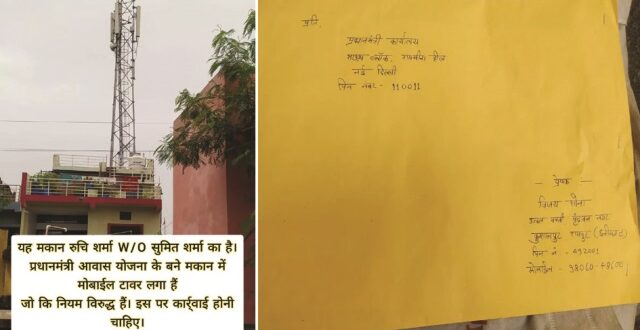 यह मकान रुचि शर्मा W/O सुमित शर्मा का है।
प्रधानमंत्री आवास योजना के बने मकान में
मोबाईल टावर लगा हैं
जो कि नियम विरुद्ध हैं। इस पर कार्रवाई होनी
चाहिए।
प्रति,
प्रधानमंत्री कार्यालय
साउथ ब्लॉक, रायसीना हिल
नई दिल्ली
पिन नंबर - 110011
- प्रेषक -
विजय
रायपुर (छत्तीसगढ़)
पिन नं - 492001
मोबाईल -